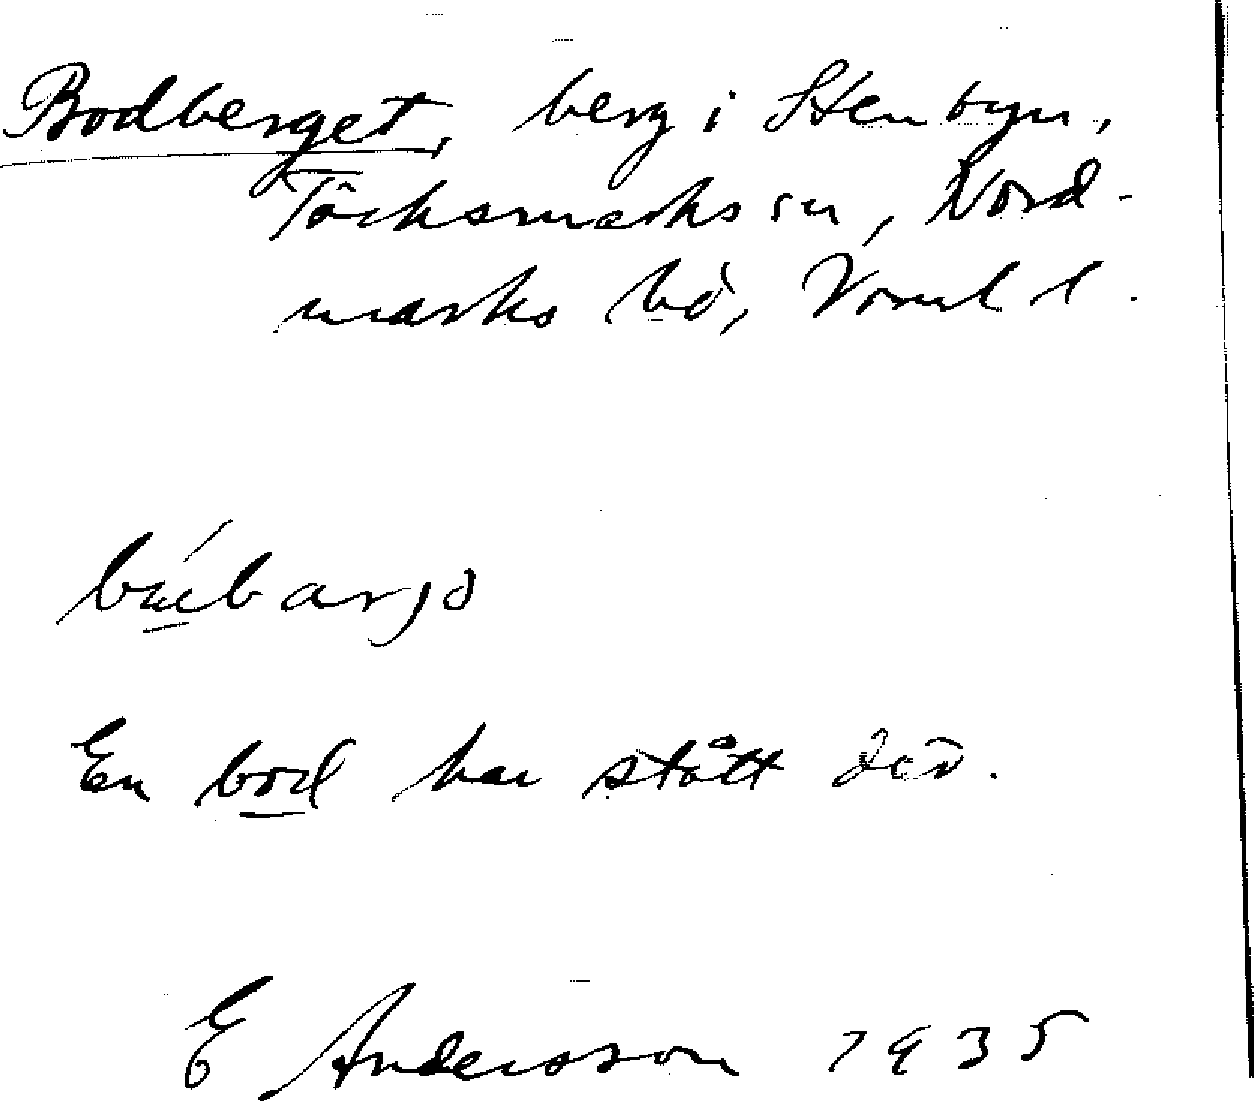 Bodberget, berg i Stenbyn,
Töcksmarks sn, Nord-
marks hd, Värml l.
En bod har stått där.
E Andersson 1935